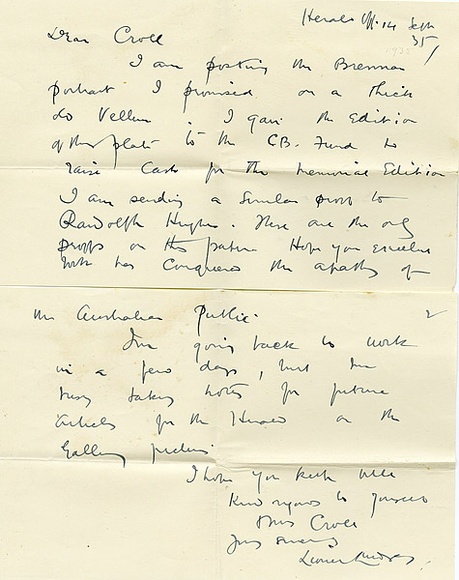 Herald Off. 14 Sept
35
Dear Croll
I am posting the Brennan
portrait I promised on a thick
do Vellum. I gave the Edition
of this plate to the CB. Fund to
raise Cash for the Memorial Edition
I am sending a similar proof to
Randolph Hughes. These are the only
proofs on this paper. Hope your excellent
work has conquered the apathy of
the Australian Public.
2
I'm going back to work
in a few days, but I'm
busy taking notes for future
articles for the Herald on the
Gallery pictures
I hope you keep well
Kind regards to yourself
Mrs Croll
Yrs sincerely
Lionel Lindsay